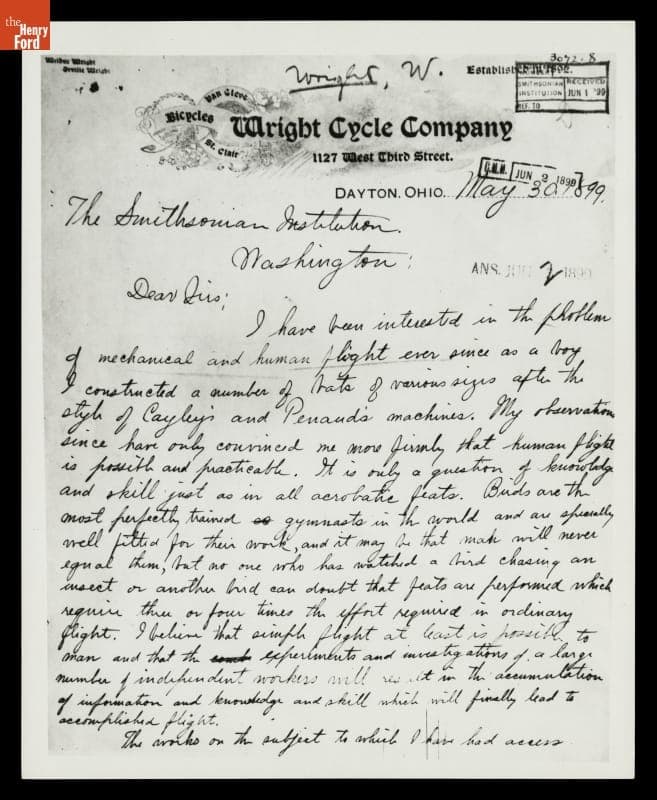 the
Henry
Ford
Wilbur Wright
Orville Wright
3072-8
Wright, W.
Established in 1892.
SMITHSONIAN
INSTITUTION
RECEIVED
JUN 1 '99
REF. TO
Van Cleve
Bicycles
St. Clair
Wright Cycle Company
1127 West Third Street.
JUN 2 1899
DAYTON, OHIO. May 30 1899.
The Smithsonian Institution.
Washington;
ANS. JUN 2 1899
Dear Sirs;
I have been interested in the problem
of mechanical and human flight ever since as a boy
I constructed a number of bats of various sizes after the
style of Cayley's and Penaud's machines. My observations
since have only convinced me more firmly that human flight
is possible and practicable. It is only a question of knowledge
and skill just as in all acrobatic feats. Birds are the
most perfectly trained gymnasts in the world and are specially
well fitted for their work, and it may be that man will never
equal them, but no one who has watched a bird chasing an
insect or another bird can doubt that feats are performed which
require three or four times the effort required in ordinary
flight. I believe that simple flight at least is possible to
man and that the experiments and investigations of a large
number of independent workers will result in the accumulation
of information and knowledge and skill which will finally lead to
accomplished flight.
The works on the subject to which I have had access